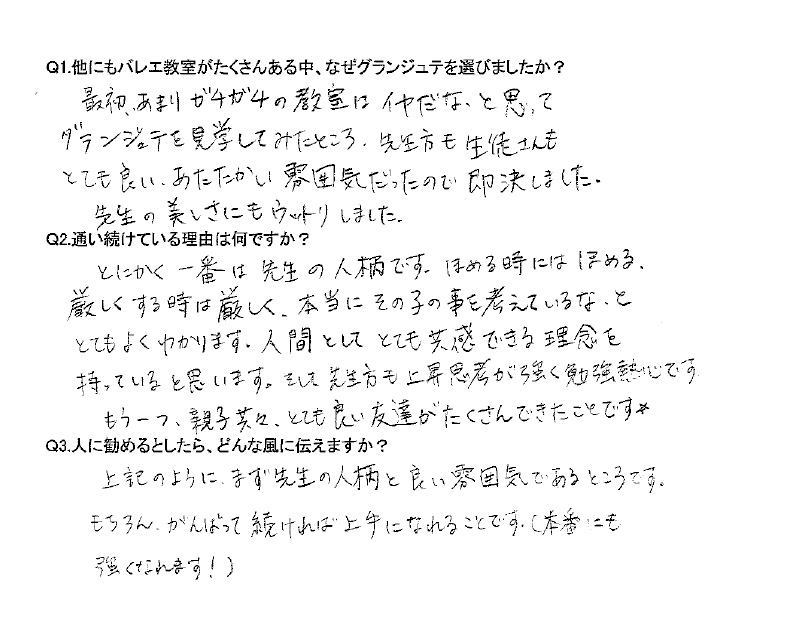 Q1.他にもバレエ教室がたくさんある中、なぜグランジュテを選びましたか？
最初、あまりガチガチの教室はイヤだな、と思って
グランジュテを見学してみたところ、先生方も生徒さんも
とても良い、あたたかい雰囲気だったので即決しました。
先生の美しさにもウットリしました。
Q2.通い続けている理由は何ですか？
とにかく一番は先生の人柄です。ほめる時にはほめる、
厳しくする時は厳しく、本当にその子の事を考えているな、と
とてもよくわかります。人間としてとても共感できる理念を
持っていると思います。そして先生方も上昇思考が強く勉強熱心です
もう一つ、親子共々、とても良い友達がたくさんできたことです☆
Q3.人に勧めるとしたら、どんな風に伝えますか？
上記のように、まず先生の人柄と良い雰囲気であるところです。
もちろん、がんばって続ければ上手になれることです。(本番にも
強くなれます！)